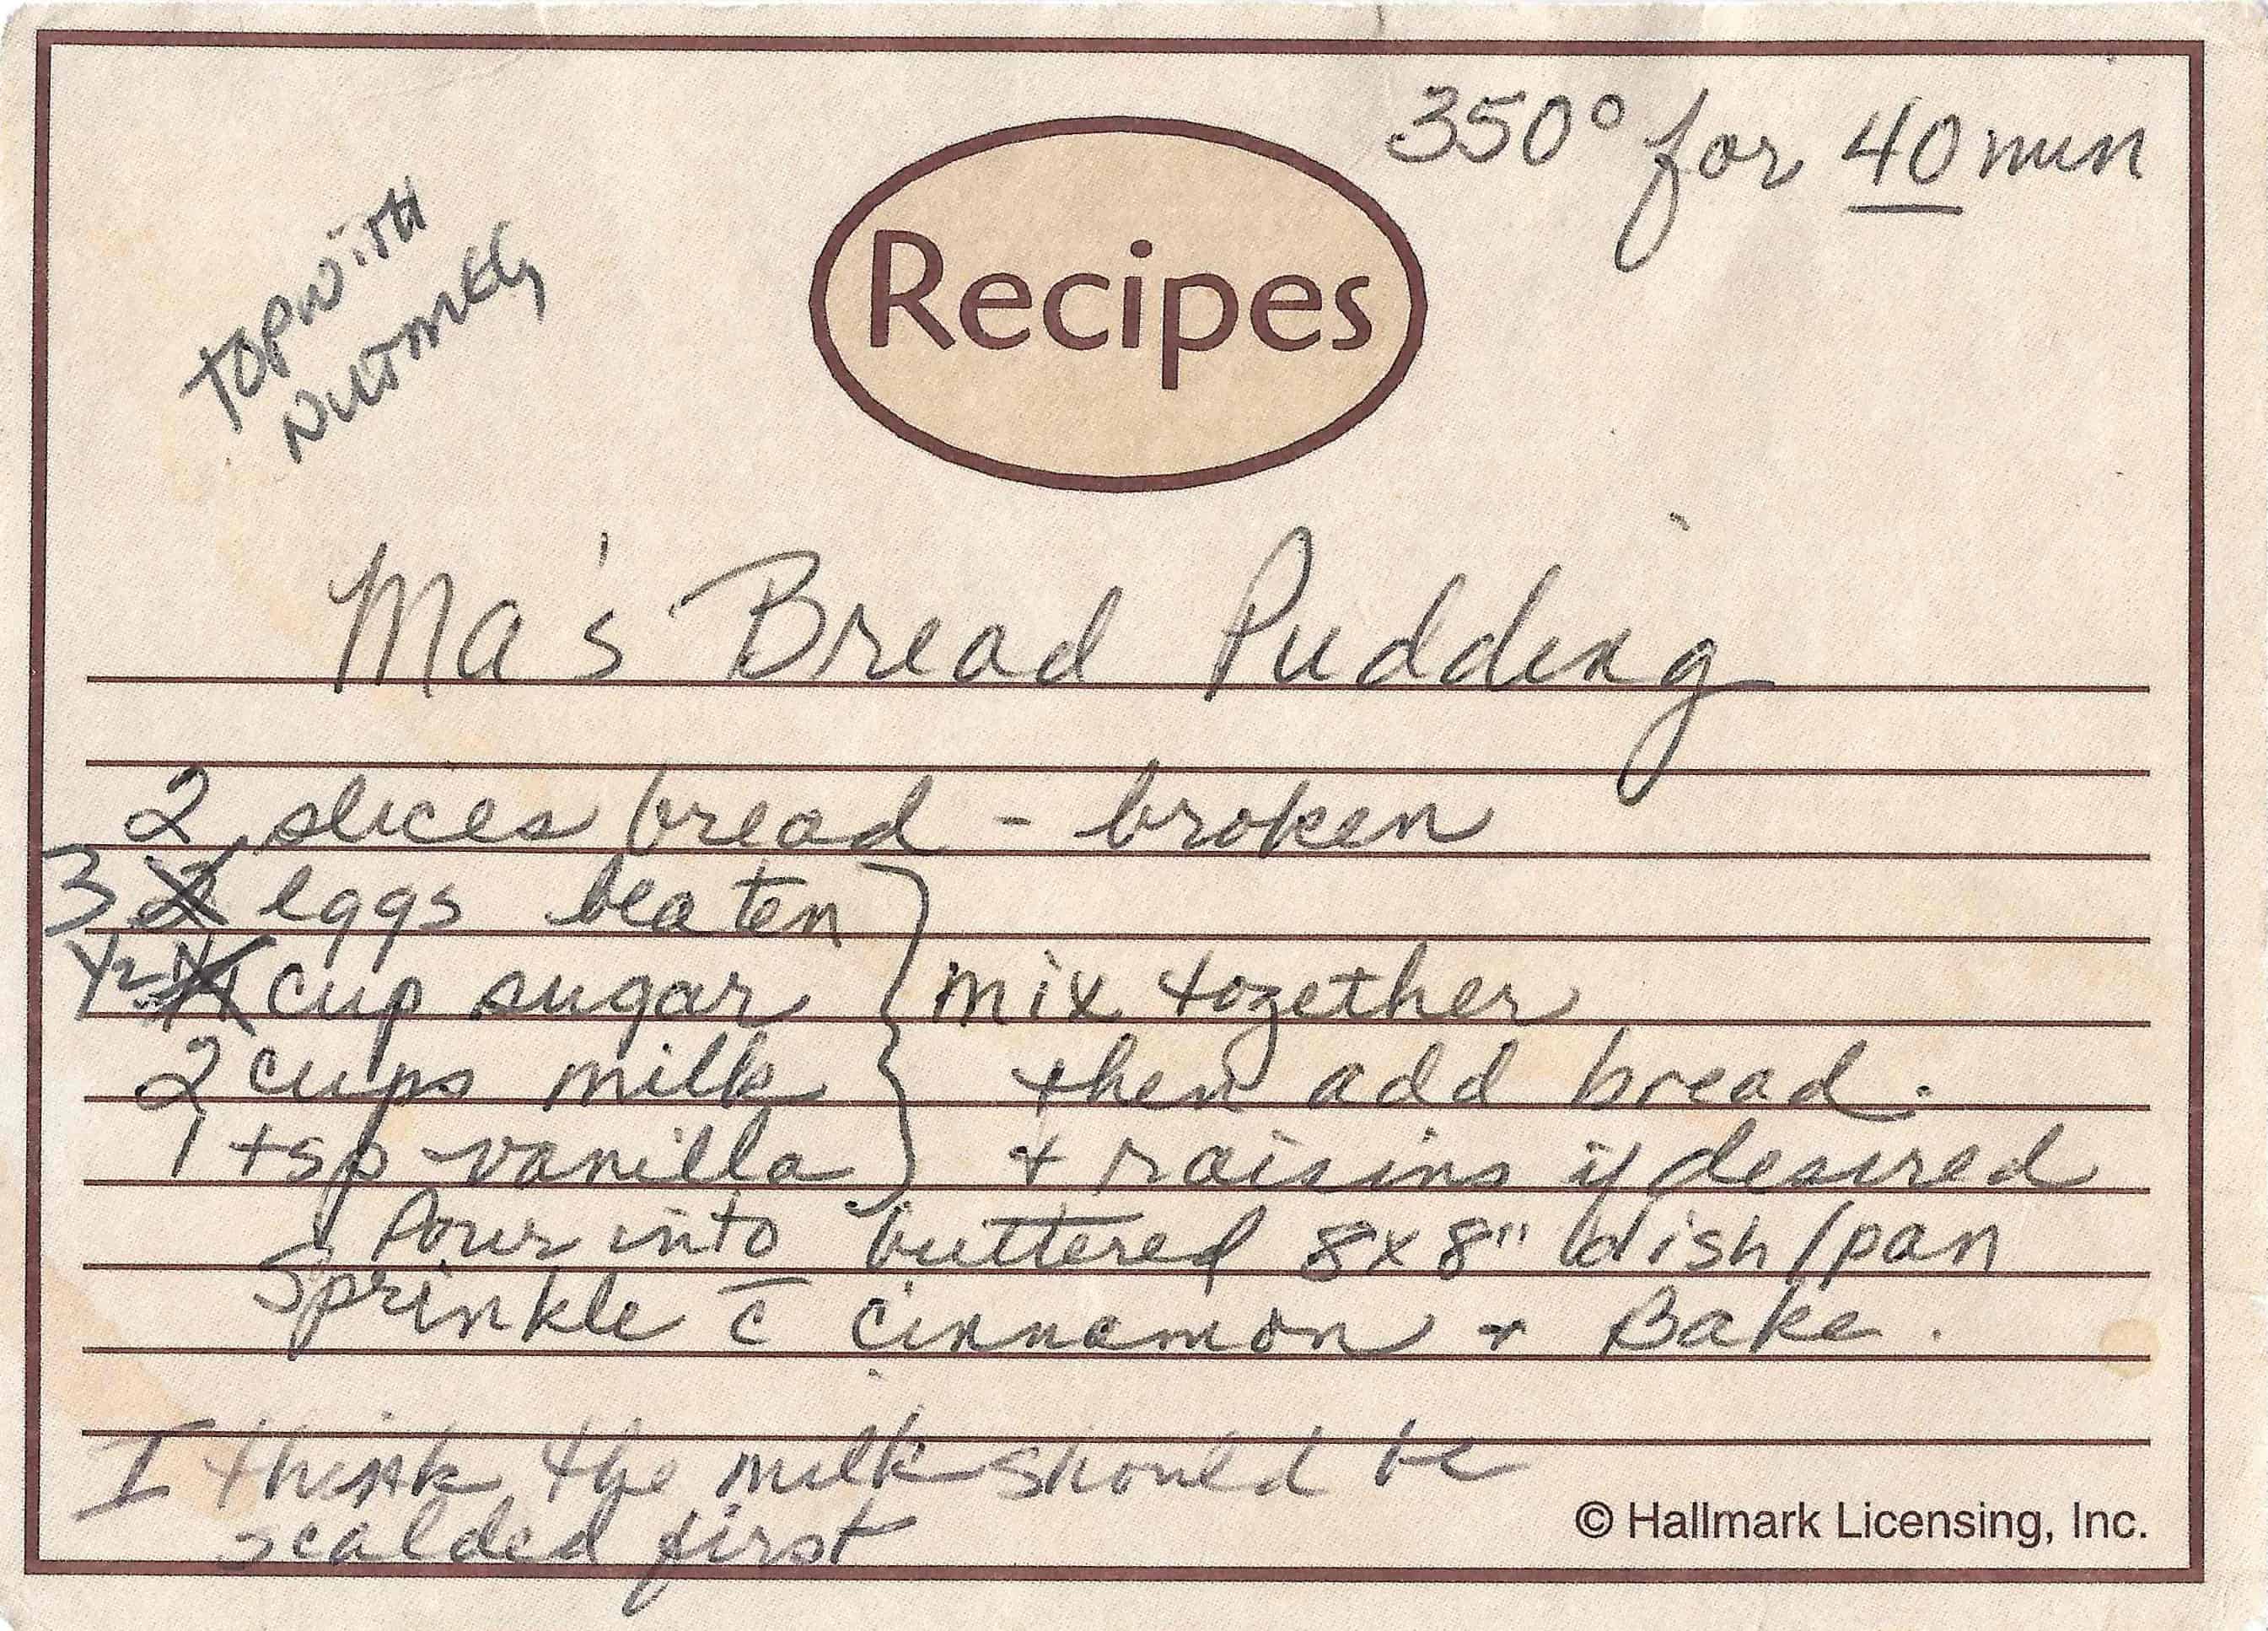 350° for 40 min
Recipes
top with
nutmeg
Ma's Bread Pudding
2 slices bread - broken
3 2 eggs beaten
1/2 cup sugar } mix together
2 cups milk then add bread.
1 tsp vanilla + raisins if desired
Pour into buttered 8x8" dish/pan
Sprinkle c̄ cinnamon + Bake.
I think the milk should be
scalded first
© Hallmark Licensing, Inc.